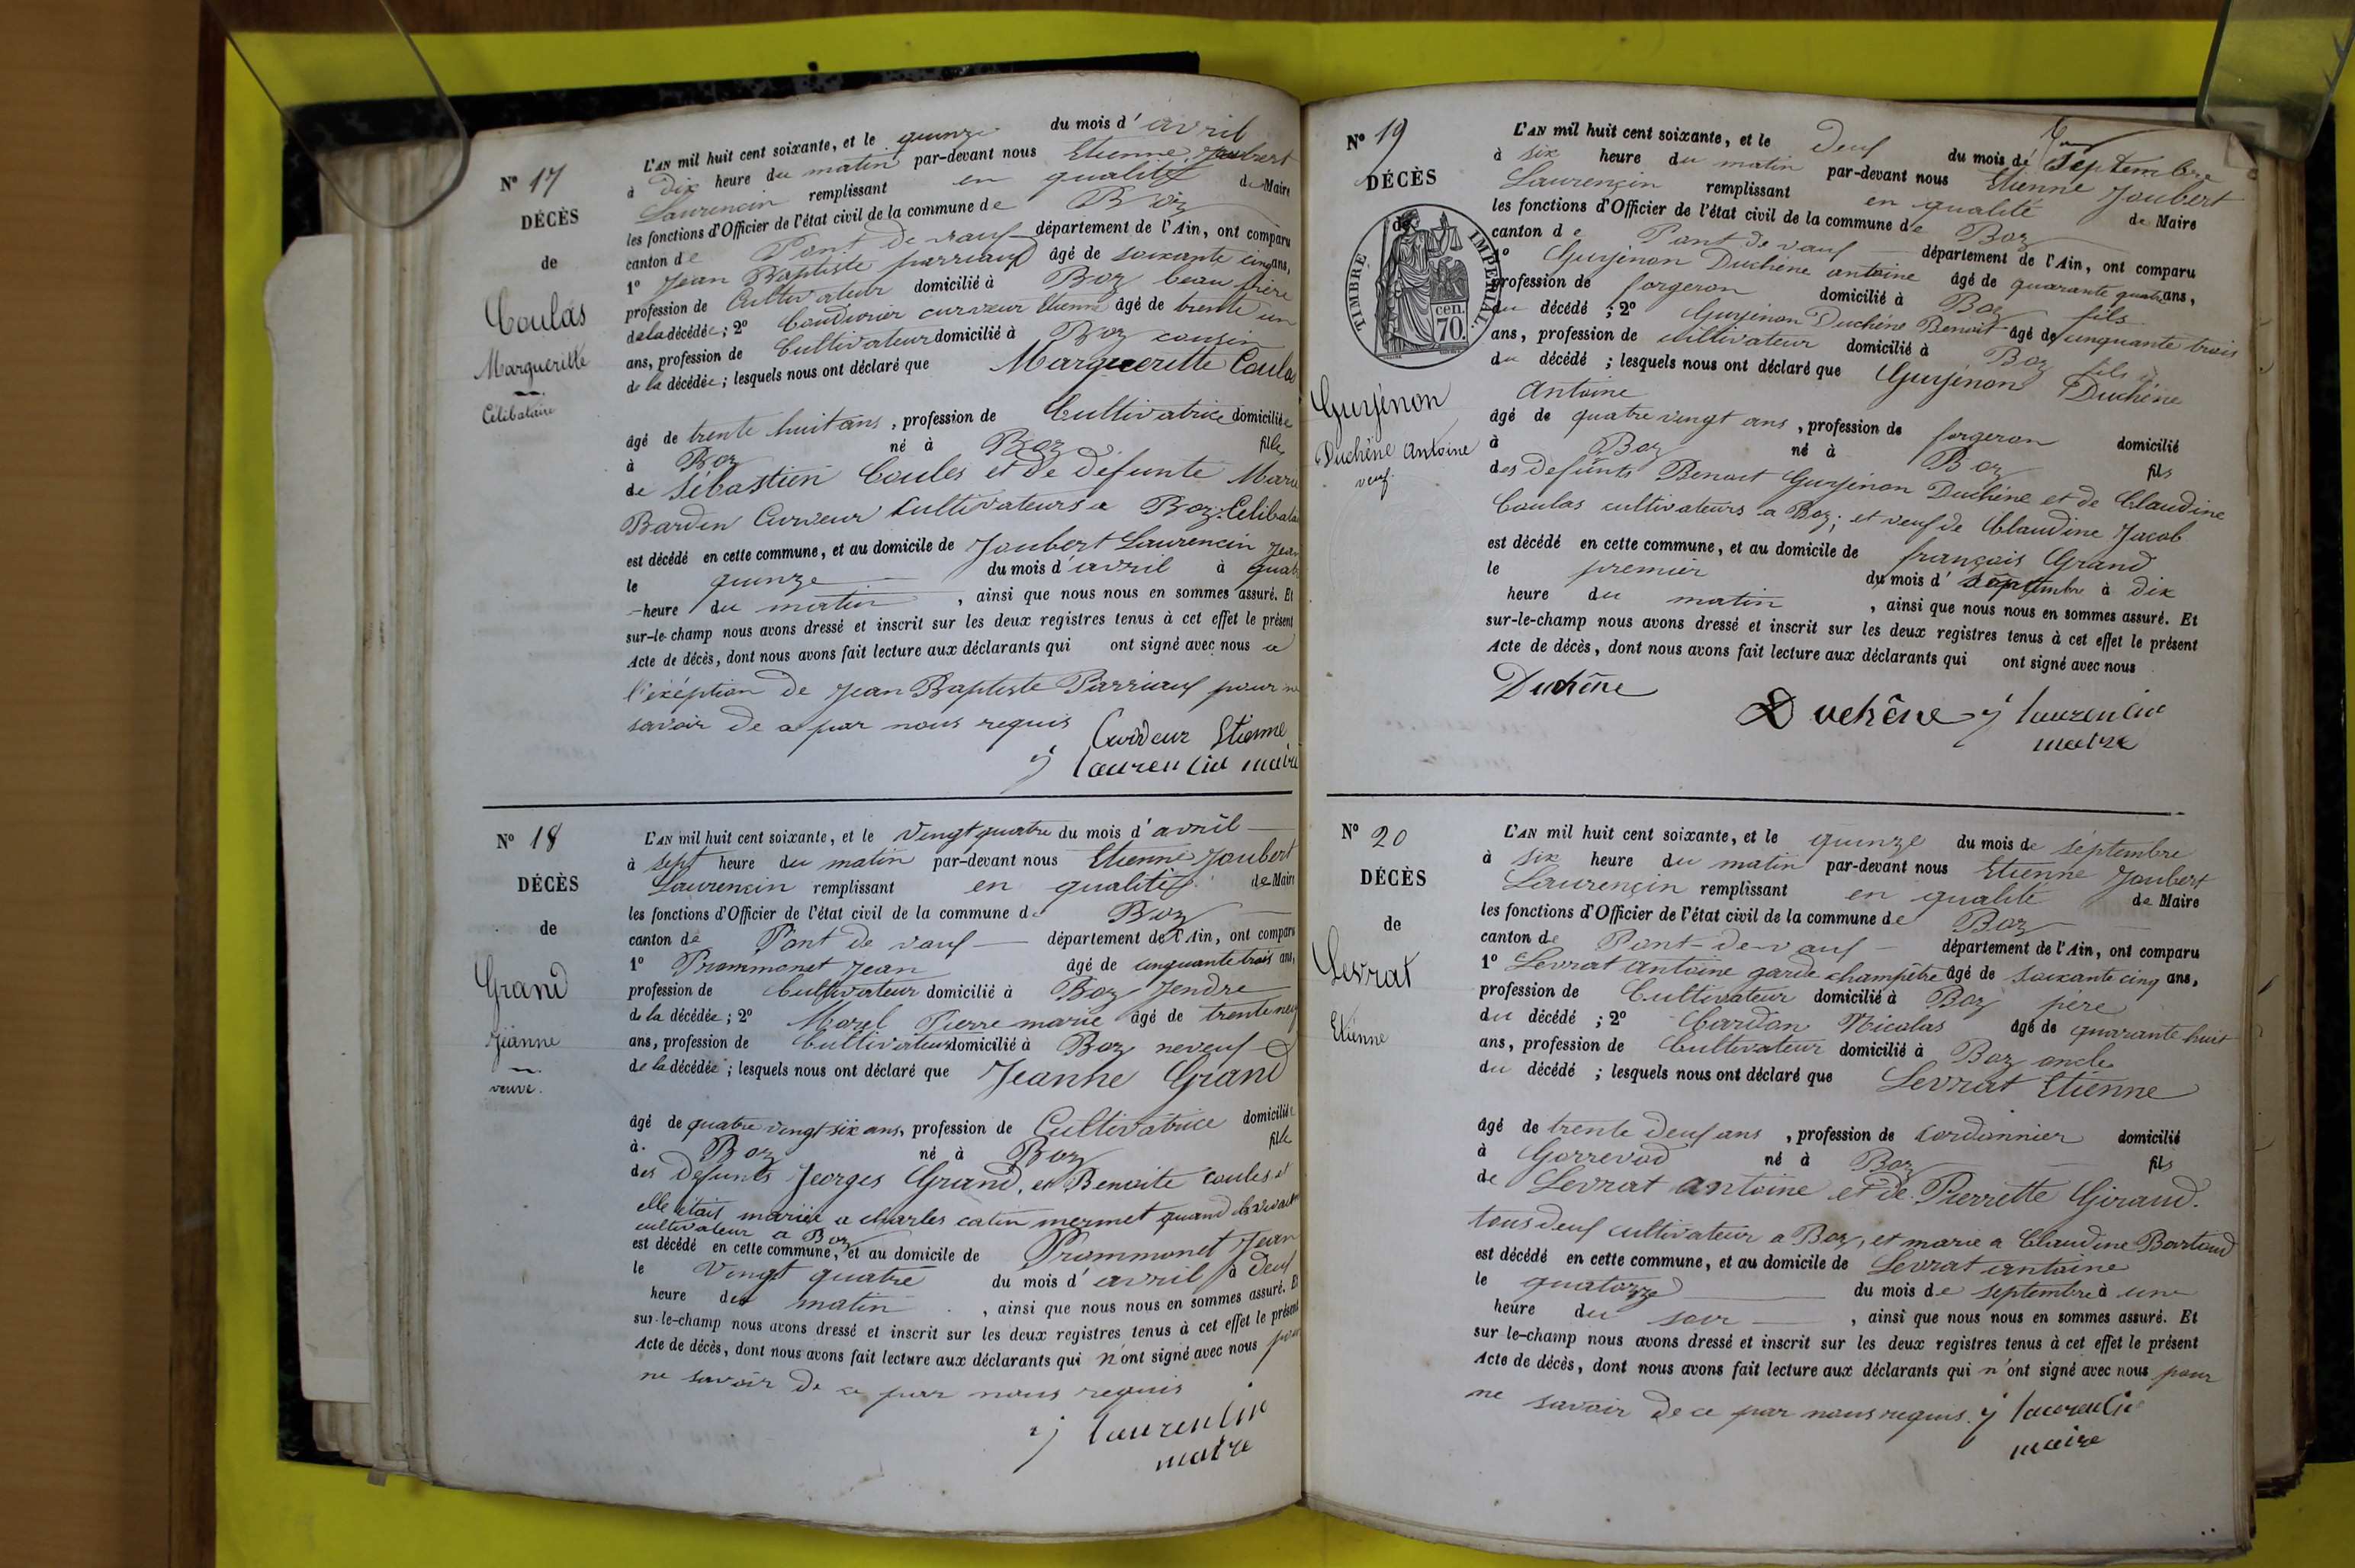 N° 17
DÉCÈS
de
Coulas
Margueritte
Célibataire
L'AN mil huit cent soixante, et le quinze du mois d'avril
à dix heure du matin par-devant nous Etienne Joubert
Laurencin remplissant en qualité de Maire
les fonctions d'Officier de l'état civil de la commune de Boz
canton de Pont de vaux département de l'Ain, ont comparu
1° Jean Baptiste parriaud âgé de soixante cinq ans,
profession de Cultivateur domicilié à Boz beau frère
de la décédée; 2° Coudurier curveur Etienne âgé de trente un
ans, profession de Cultivateur domicilié à Boz cousin
de la décédée; lesquels nous ont déclaré que Marguerette Coulas
âgé de trente huit ans, profession de Cultivatrice domiciliée
à Boz né à Boz fille
de Sébastien Coules et de défunte Marie
Bardin Curveur cultivateurs a Boz. Celibata
est décédé en cette commune, et au domicile de Joubert Laurencin Jean
le quinze du mois d'avril à quatre
heure du matin, ainsi que nous nous en sommes assuré. Et
sur-le-champ nous avons dressé et inscrit sur les deux registres tenus à cet effet le présent
Acte de décès, dont nous avons fait lecture aux déclarants qui ont signé avec nous a
l'exéption de Jean Baptiste Parriaux pour ne
savoir de a par nous requis
Curveur Etienne
j laurencin maire
N° 18
DÉCÈS
de
Grand
Jeanne
veuve.
L'AN mil huit cent soixante, et le Vingt quatre du mois d'avril
à sept heure du matin par-devant nous Etienne Joubert
Laurencin remplissant en qualité de Maire
les fonctions d'Officier de l'état civil de la commune de Boz
canton de Pont de vaux département de l'Ain, ont comparu
1° Prommonet Jean âgé de cinquante trois ans,
profession de Cultivateur domicilié à Boz Jendre
de la décédée; 2° Morel Pierre marie âgé de trente neuf
ans, profession de Cultivateur domicilié à Boz neveux
de la décédée; lesquels nous ont déclaré que Jeanne Grand
âgé de quatre vingt six ans, profession de Cultivatrice domiciliée
à Boz né à Boz fille
des defunts Jeorges Grand, et Benoite coules et
elle était mariée a charles catin mermet quand il vivait
cultivateur a Boz
est décédé en cette commune, et au domicile de Prommonet Jean
le Vingt quatre du mois d'avril à deux
heure du matin, ainsi que nous nous en sommes assuré. Et
sur-le-champ nous avons dressé et inscrit sur les deux registres tenus à cet effet le présent
Acte de décès, dont nous avons fait lecture aux déclarants qui n'ont signé avec nous pour
ne savoir de ce par nous requis
j laurencin
maire
N° 19
DÉCÈS
de
TIMBRE IMPÉRIAL.
cen.
70.
Gurjenon
Duchêne Antoine
veuf.
L'AN mil huit cent soixante, et le deux du mois de Septembre
à six heure du matin par-devant nous Etienne Joubert
Laurençin remplissant en qualité de Maire
les fonctions d'Officier de l'état civil de la commune de Boz
canton de Pont de vaux département de l'Ain, ont comparu
1° Gurjenon Duchêne antoine âgé de quarante quatre ans,
profession de forgeron domicilié à Boz fils
du décédé; 2° Gurjenon Duchêne Benoit âgé de cinquante trois
ans, profession de cultivateur domicilié à Boz fils
du décédé; lesquels nous ont déclaré que Gurjenon Duchêne
Antoine
âgé de quatre vingt ans, profession de forgeron domicilié
à Boz né à Boz fils
des defunts Benoit Gurjenon Duchêne et de Claudine
Coulas cultivateurs a Boz; et veuf de Claudine Jacob
est décédé en cette commune, et au domicile de françois Grand
le premier du mois d' Septembre à dix
heure du matin, ainsi que nous nous en sommes assuré. Et
sur-le-champ nous avons dressé et inscrit sur les deux registres tenus à cet effet le présent
Acte de décès, dont nous avons fait lecture aux déclarants qui ont signé avec nous
Duchêne
Duchêne j laurencin
maire
N° 20
DÉCÈS
de
Levrat
Etienne
L'AN mil huit cent soixante, et le quinze du mois de séptembre
à six heure du matin par-devant nous Etienne Joubert
Laurençin remplissant en qualité de Maire
les fonctions d'Officier de l'état civil de la commune de Boz
canton de Pont-de-vaux département de l'Ain, ont comparu
1° Levrat Antoine garde champêtre âgé de soixante cinq ans,
profession de Cultivateur domicilié à Boz père
du décédé; 2° Cardon Nicolas âgé de quarante huit
ans, profession de Cultivateur domicilié à Boz oncle
du décédé; lesquels nous ont déclaré que Levrat Etienne
âgé de trente deux ans, profession de cordonnier domicilié
à Gorrevod né à Boz fils
de Levrat antoine et de Pierrette Giraud.
tous deux cultivateur a Boz, et marie a Claudine Bertoud
est décédé en cette commune, et au domicile de Levrat antoine
le quatorze du mois de septembre à une
heure du soir, ainsi que nous nous en sommes assuré. Et
sur le-champ nous avons dressé et inscrit sur les deux registres tenus à cet effet le présent
Acte de décès, dont nous avons fait lecture aux déclarants qui n'ont signé avec nous pour
ne savoir de ce par nous requis. j laurencin
maire